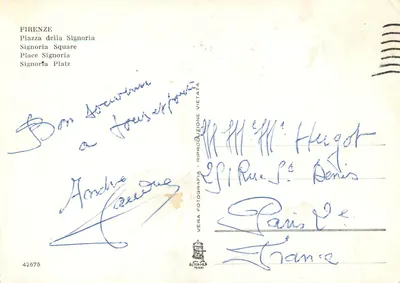 FIRENZE
Piazza della Signoria
Signoria Square
Place Signoria
Signoria Platz
Bon souvenir
a
André
42675
VERA FOTOGRAFIA - RIPRODUZIONE VIETATA
Hugot
Rue St Denis
Paris 2e
France